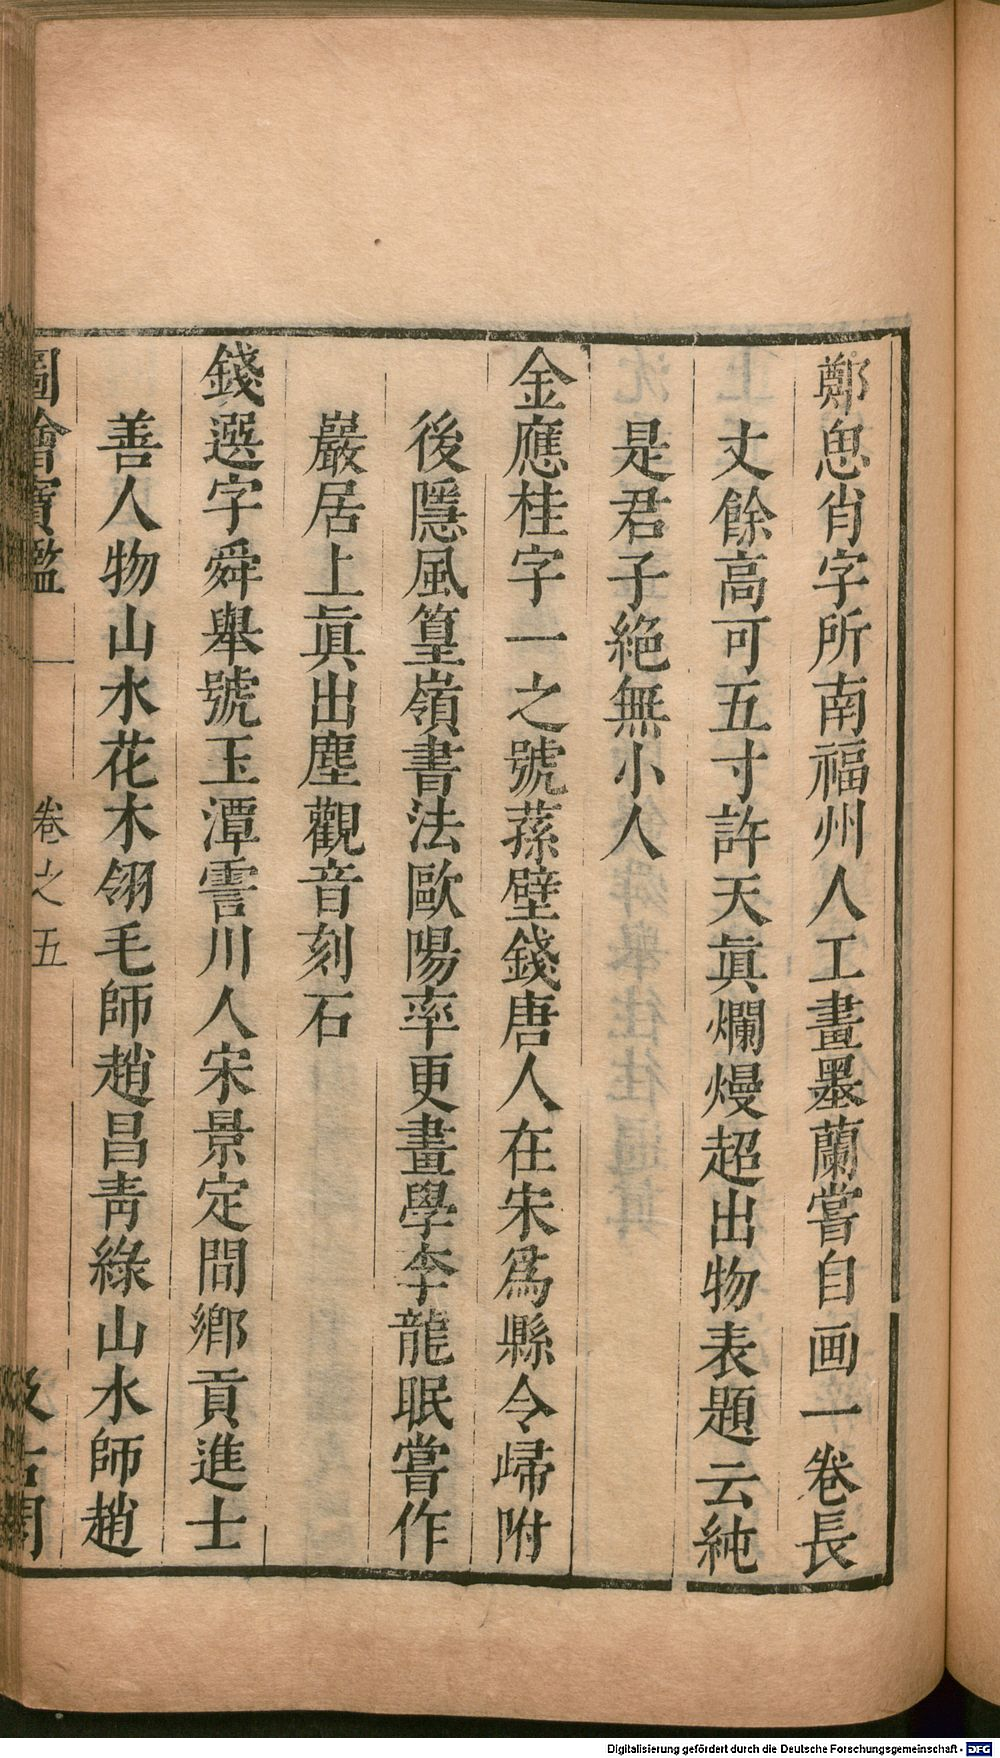 鄭思肖字所南福州人工畫墨蘭嘗自画一卷長
丈餘高可五寸許天眞爛熳超出物表題云純
是君子絶無小人
金應桂字一之號蓀壁錢唐人在宋爲縣令歸附
後隱風篁嶺書法歐陽率更畫學李龍眠嘗作
巖居上眞出塵觀音刻石
錢選字舜舉號玉潭霅川人宋景定間鄉貢進士
善人物山水花木翎毛師趙昌靑綠山水師趙
圖繪寶鑑 卷之五 汲古閣
Digitalisierung gefördert durch die Deutsche Forschungsgemeinschaft - DFG